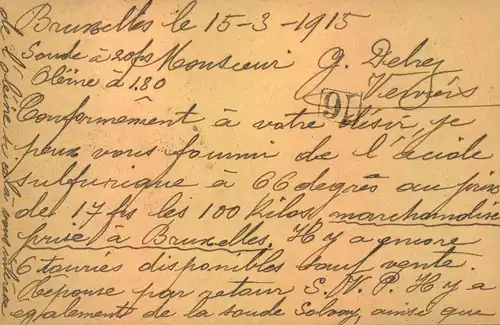 Bruxelles le 15-3-1915
Soude à 20frs Monsieur J. Delrez
Oléine à 1.80 Verviers
16
Conformément à votre désir, je
peux vous fournir de l'acide
sulfurique à 66 degrés au prix
de 17 frs les 100 kilos, marchandise
prise à Bruxelles. Il y a encore
6 touries disponibles sauf vente.
Réponse par retour S.V.P. Il y a
egalement de la soude Solvay, ainsi que
de l'oleine